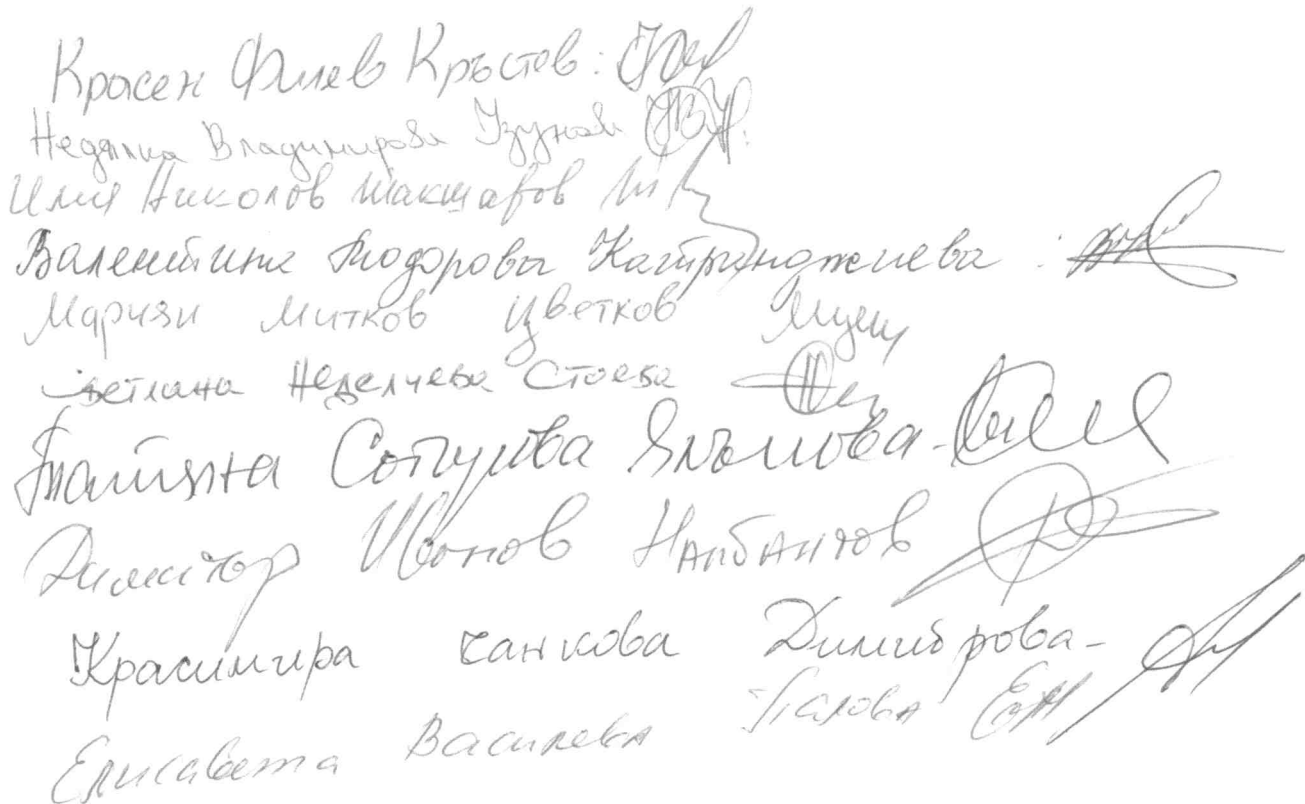 Красен Филев Кръстев:
Недялка Владимирова Узунова
Илия Николов Шакшаров
Валентина Тодорова Катранджиева :
Мариян Митков Цветков
Светлана Неделчева Стоева
Татяна Ялъмова-
Димитър Иванов Налбантов
Красимира Канкова Димитрова-
Елисавета Василева